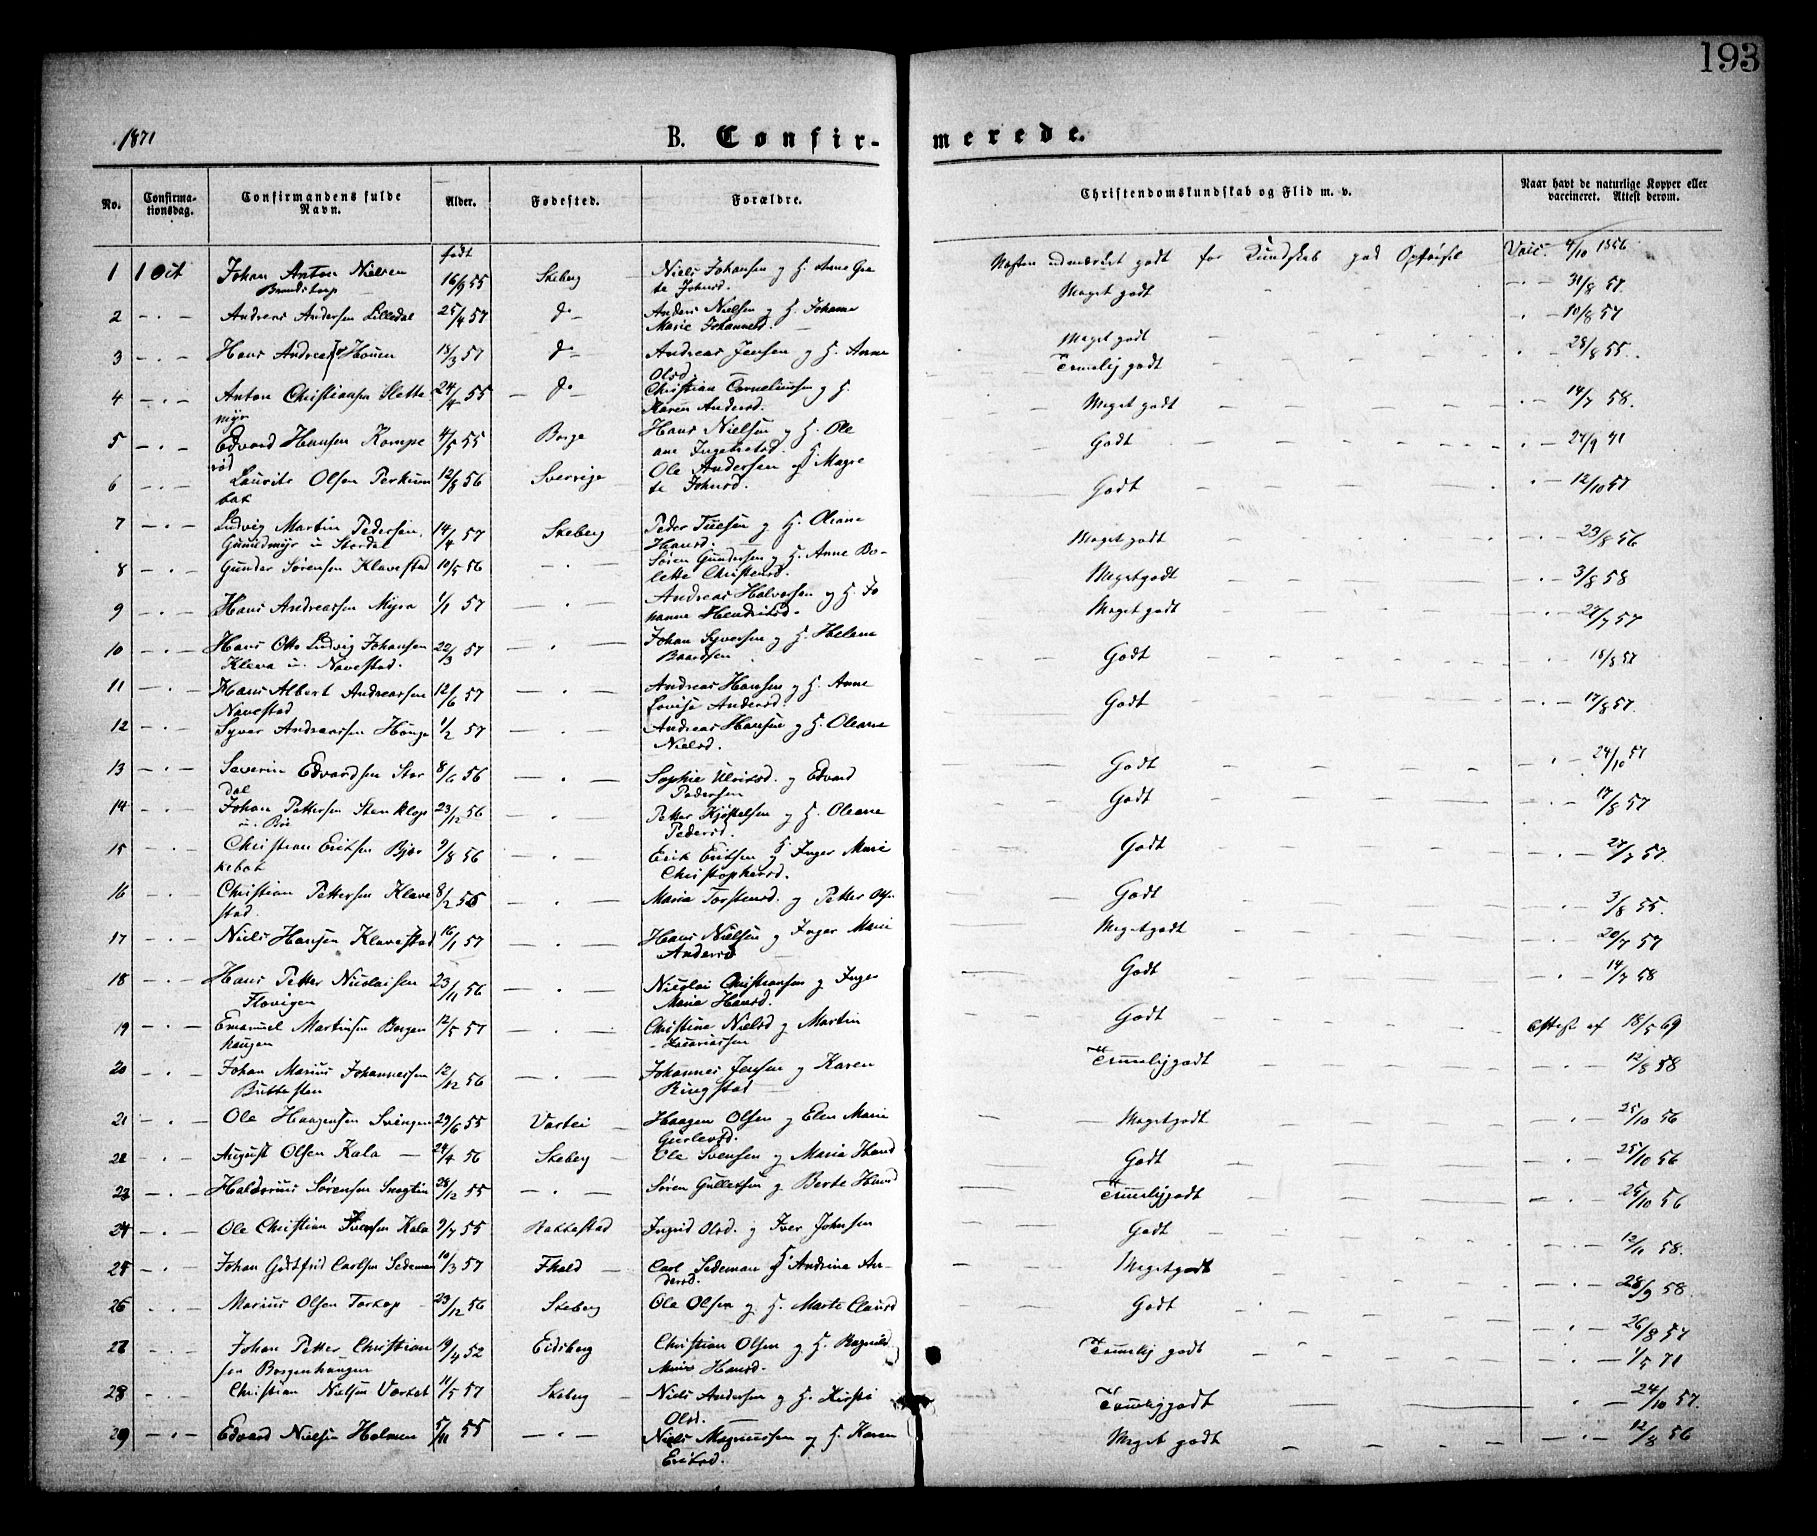 193
1871
B. Confirmerede.
No.
Confirmationsdag.
Confirmandens fulde Navn.
Alder.
Fødested.
Forældre.
Christendomskundskab og Flid m. v.
Naar havt de naturlige Kopper eller vaccineret. Attest derom.
født
1 1 Oct Johan Anton Nielsen 16/9 55 Skeberg Niels Johansen g H. Anne Gre Næsten udmærket godt for Kundskab god Opførsel Vaic. 4/10 1856
Brandstorp te Johnsd. Meget godt 31/8 57
2 — · — Andreas Andersen Lilledal 25/4 57 do Anders Nielsen g H. Johanne 10/8 57
Marie Johannesd. Meget godt
3 — · — Hans Andreas 13/3 57 do Andreas Jensen g H. Anne Temelig godt 28/8 55
Olsd.
4 — · — Anton Christiansen Slette 24/4 55 do Christian Corneliussen g H. Meget godt 14/7 58.
myr Karen Andersd.
5 — · — Edvard Hansen Kompe 4/5 55 Borge Hans Nielsen g H. Ole Godt
rød ane Ingebretsd.
6 — · — Laurits Olsen Perkum 12/8 56 Sverrige Ole Andersen g H. Magre Godt 12/10 57
bat te Johnsd.
7 — · — Ludvig Martin Pedersen, 14/4 57 Skeberg Peder g H. Oleane Meget godt 23/8 56
Gundmyr u Stordal Hansd.
8 — · — Gunder Sørensen Klavestad 10/5 56 — · — Søren Gundersen g H. Anne Bo- Megetgodt 3/8 58
lette Christensd.
9 — · — Hans Andreassen Myra 1/1 57 — · — Andreas Halvorsen g H. Jo Meget godt 27/7 57
hanne Hendriksd.
10 — · — Hans Otto Ludvig Johansen 22/3 57 — · — Johan Syversen g H. Helene Godt 18/8 57
Kleva u. Navestad. Baardsen
11 — · — Hans Albert Andreassen 12/6 57 — · — Andreas Hansen g H. Anne Godt 17/8 57.
Navestad Lovise Andersd.
12 — · — Syver Andreassen Houge 1/2 57 Andreas Hansen g H. Oleane
Nielsd. Godt 24/10 57
13 — · — Severin Edvardsen Stor 8/6 56 — · — Sophie Ulriksd. g Edvard
dal Pedersen Godt 17/8 57
14 — · — Johan Pettersen Stenklop 23/12 56 — · — Petter Kjøstelsen g H. Oleane
u. Bøe Pedersd. Godt 27/7 57.
15 — · — Christian Eriksen Bjør 9/8 56 — · — Erik Eriksen g H. Inger Marie
kebat Christophersd.
16 — · — Christian Pettersen Klave 8/2 55 — · — Maria Torstensd. g Petter Ols. Godt 3/8 55.
stad.
17 — · — Niels Hansen Klavestad 16/1 57 — · — Hans Nielsen g Inger Marie Megetgodt 20/7 57
Andersd
18 — · — Hans Petter Nicolaisen 23/11 56 — · — Nicolai Christiansen g Inge Godt 14/7 58
Flovigen Marie Hansd.
19 — · — Emanuel Martinsen Borgen 12/5 57 — · — Christine Nielsd g Martin Godt Attest af 18/5 69
haugen Zacariassen
20 — · — Johan Marius Johannessen 12/12 56 — · — Johannes Jensen g Karen Temmeliggodt 12/8 58
Buttesten Ringstad
21 — · — Ole Haagensen Svingen 29/6 55 Varteig Haagen Olsen g Elen Marie Megetgodt 25/10 56
22 — · — August Olsen Kala 24/4 56 Skeberg Ole Svensen g Maria Hansd Godt 25/10 56
23 — · — Halvorius Sørensen 25/12 55 — · — Søren Gulleksen g Berte Hansd Temmeliggodt 25/10 56
24 — · — Ole Christian Iversen Kala 9/7 55 Rakkestad Ingrid Olsd. g Iver Johnsen Godt 12/11 58.
25 — · — Johan Gottfrid Carlsen Sedeman 10/3 57 Fhald Carl Sedeman g H. Andrine An- Megetgodt 28/9 58
dersd.
26 — · — Marius Olsen Torkop 23/12 56 Skeberg Ole Olsen g H. Marte Clausd Godt 26/8 57
27 — · — Johan Petter Christian 19/4 52 Eidsberg Christian Olsen g H. Ragnild Temmelig godt 1/5 71
sen Borgenhaugen Marie Hansd.
28 — · — Christian Nielsen Vartet 11/5 57 Skeberg Niels Andersen g H. Kirsti Temmeliggodt 24/10 57.
Olsd.
29 — · — Edvard Nielsen Holmen 5/11 55 — · — Niels Magnussen g H. Karen Meget godt 12/8 56
Eriksd.